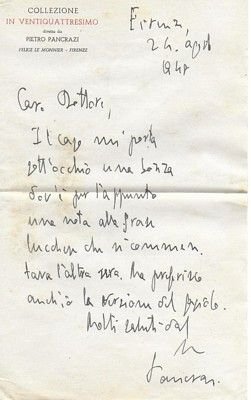 COLLEZIONE
IN VENTIQUATTRESIMO
diretta da
PIETRO PANCRAZI
FELICE LE MONNIER - FIRENZE
Firenze,
24. 
194
Caro Dottore,
Il caso mi porta
sott'occhio una
dov'è per l'appunto
una nota alla frase
che si commen-
tava l'altra sera. Ma preferisco
anch'io la versione del popolo.
Molti saluti dal
Pancrazi